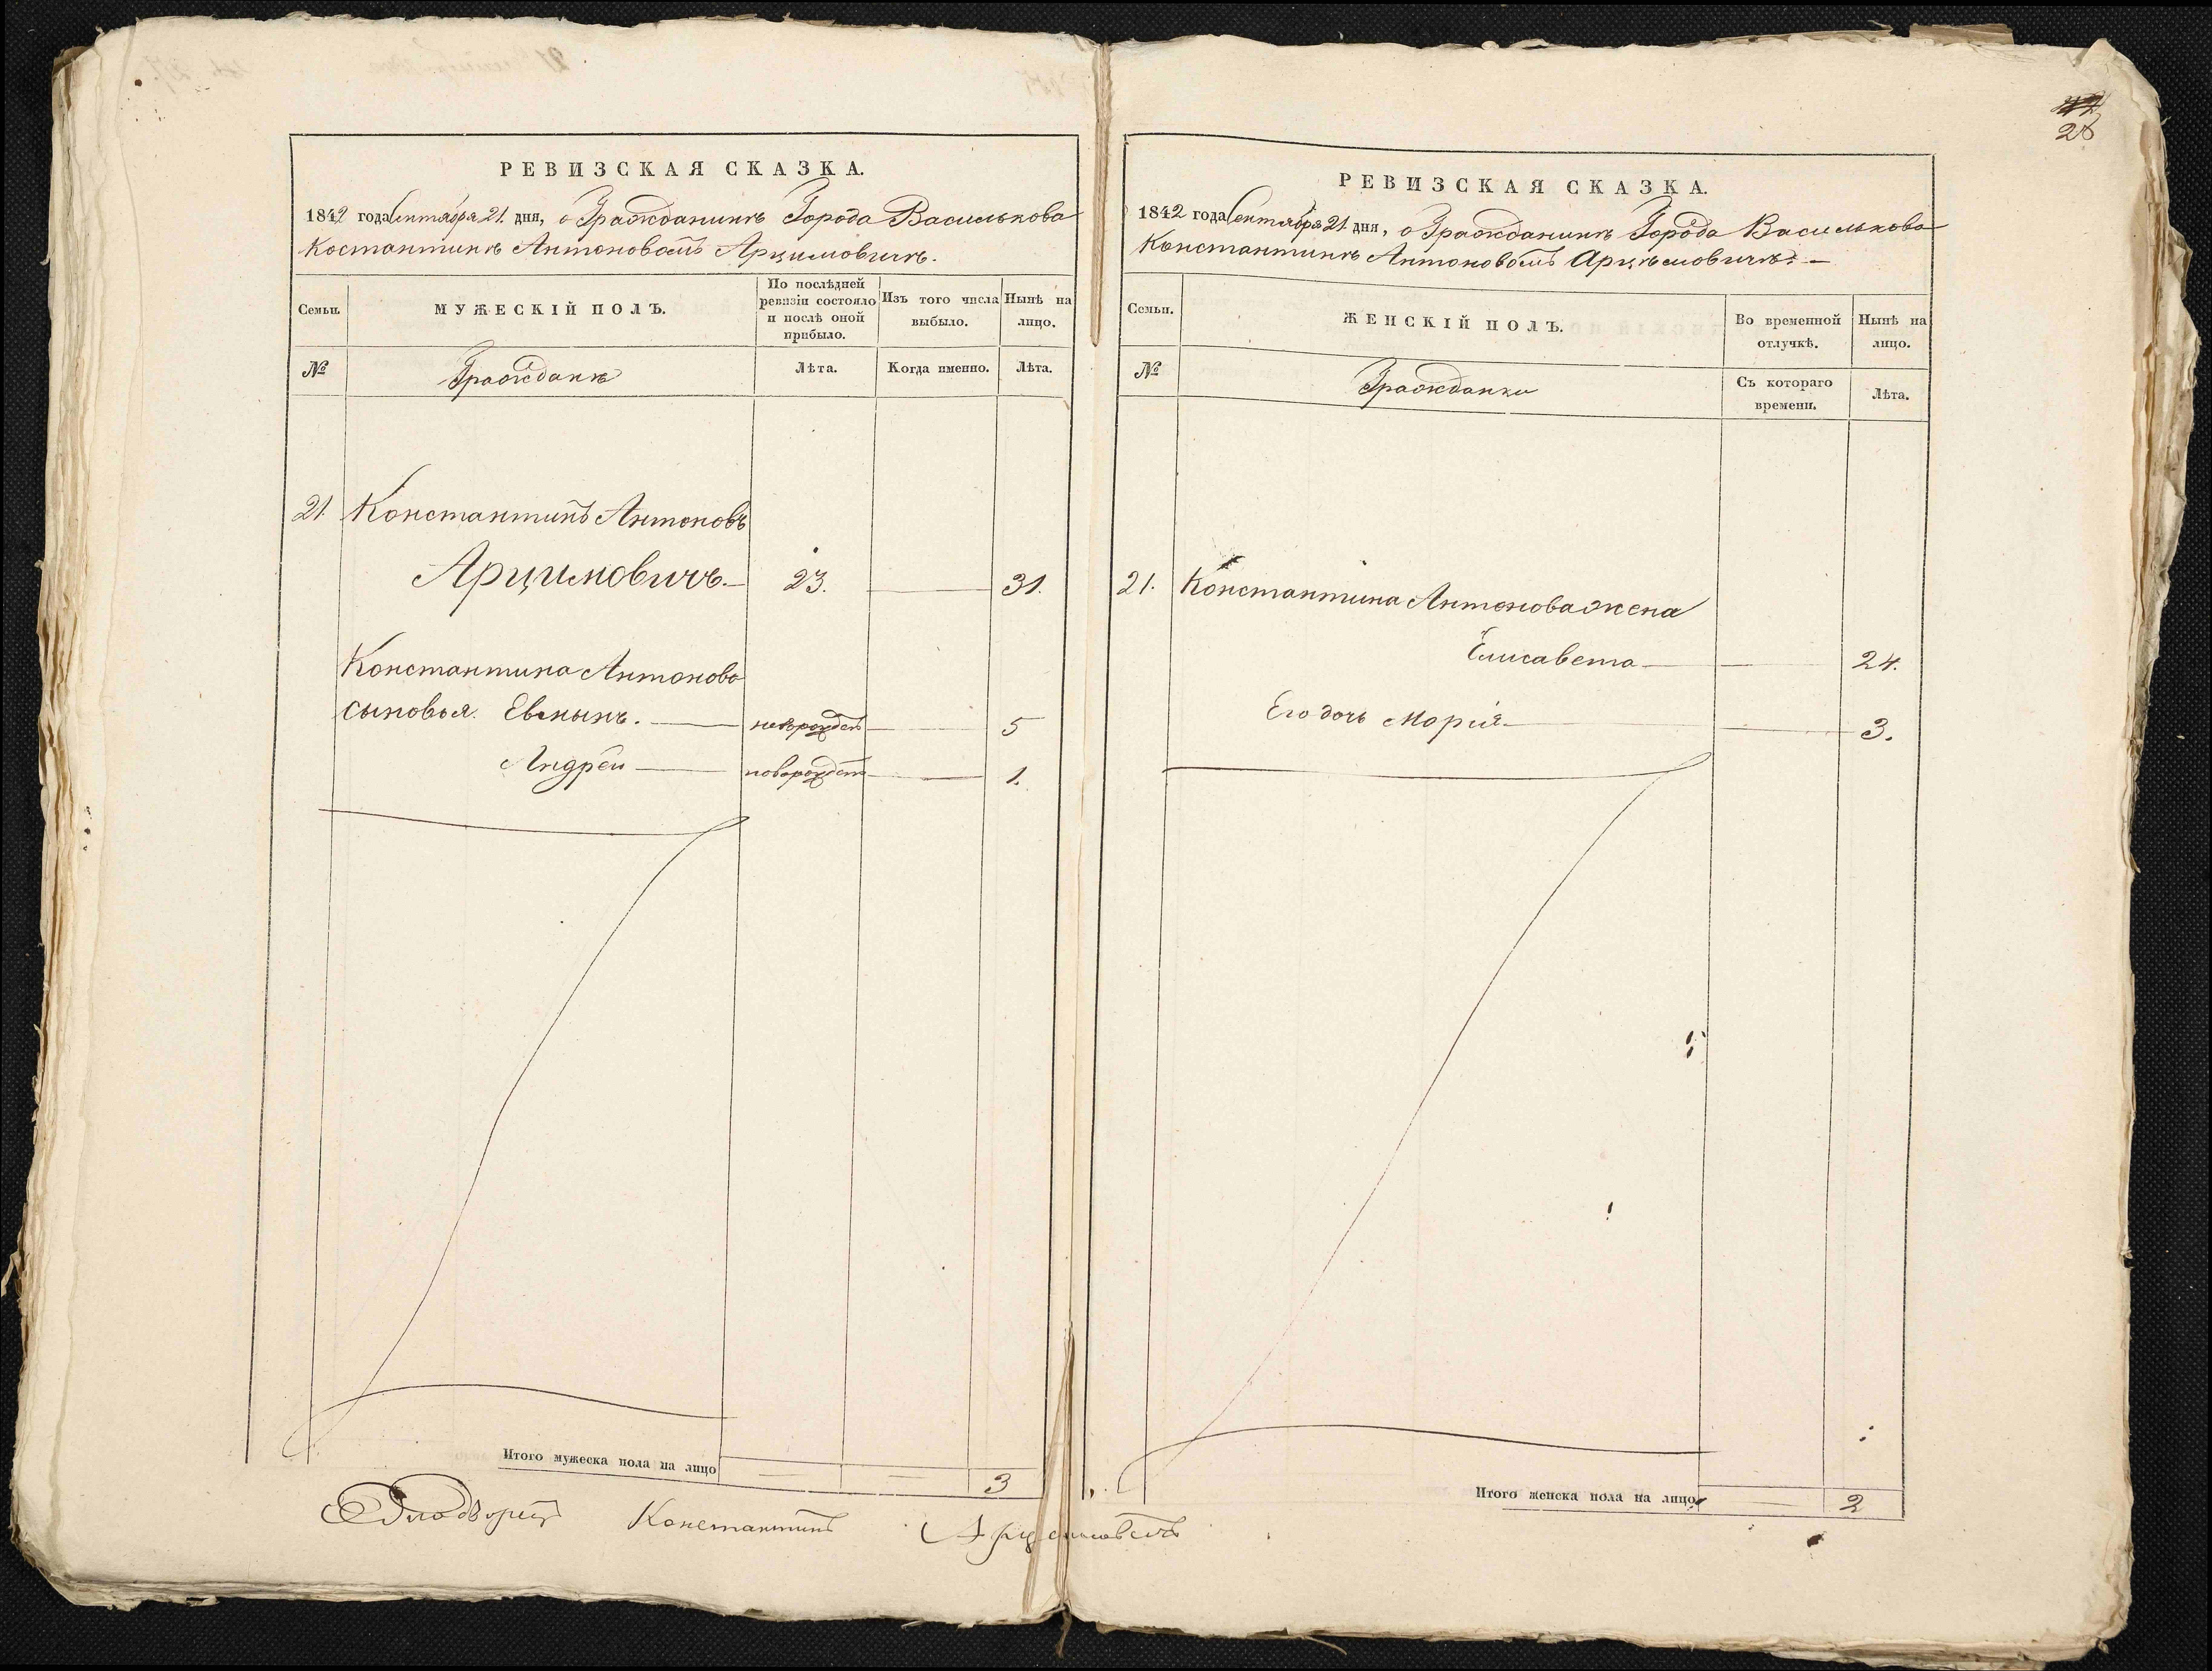 РЕВИЗСКАЯ СКАЗКА.
1842 года Сентября 21. дня, о Гражданинѣ Города Василькова
Костантинѣ Антоновомъ Арцимовичѣ.
Семьи.
МУЖЕСКІЙ ПОЛЪ.
По послѣдней ревизіи состояло и послѣ оной прибыло.
Изъ того числа выбыло.
Нынѣ на лицо.
№
Граждане
Лѣта.
Когда именно.
Лѣта.
21. Константинъ Антоновъ
Арцимовичъ. 23. 31.
Константина Антонова
сыновья. новорожден 5
Андрей новорожден 1.
Итого мужеска пола на лицо 3
Однодворец Константинъ Арцимовичъ
22
28
РЕВИЗСКАЯ СКАЗКА.
1842 года Сентября 21 дня, о Гражданинѣ Города Василькова
Константинѣ Антоновомъ Арцѣмовичѣ.
Семьи.
ЖЕНСКІЙ ПОЛЪ.
Во временной отлучкѣ.
Нынѣ на лицо.
№
Гражданки
Съ котораго времени.
Лѣта.
21. Константина Антонова жена
Елисавета 24.
Его дочь Марія 3.
Итого женска пола на лицо 2